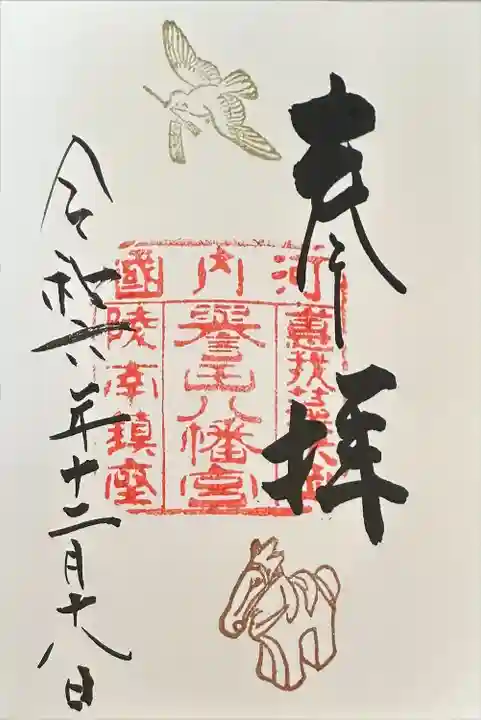 奉拝
河内國
誉田八幡宮
陵南鎮座
令和六年十二月十八日